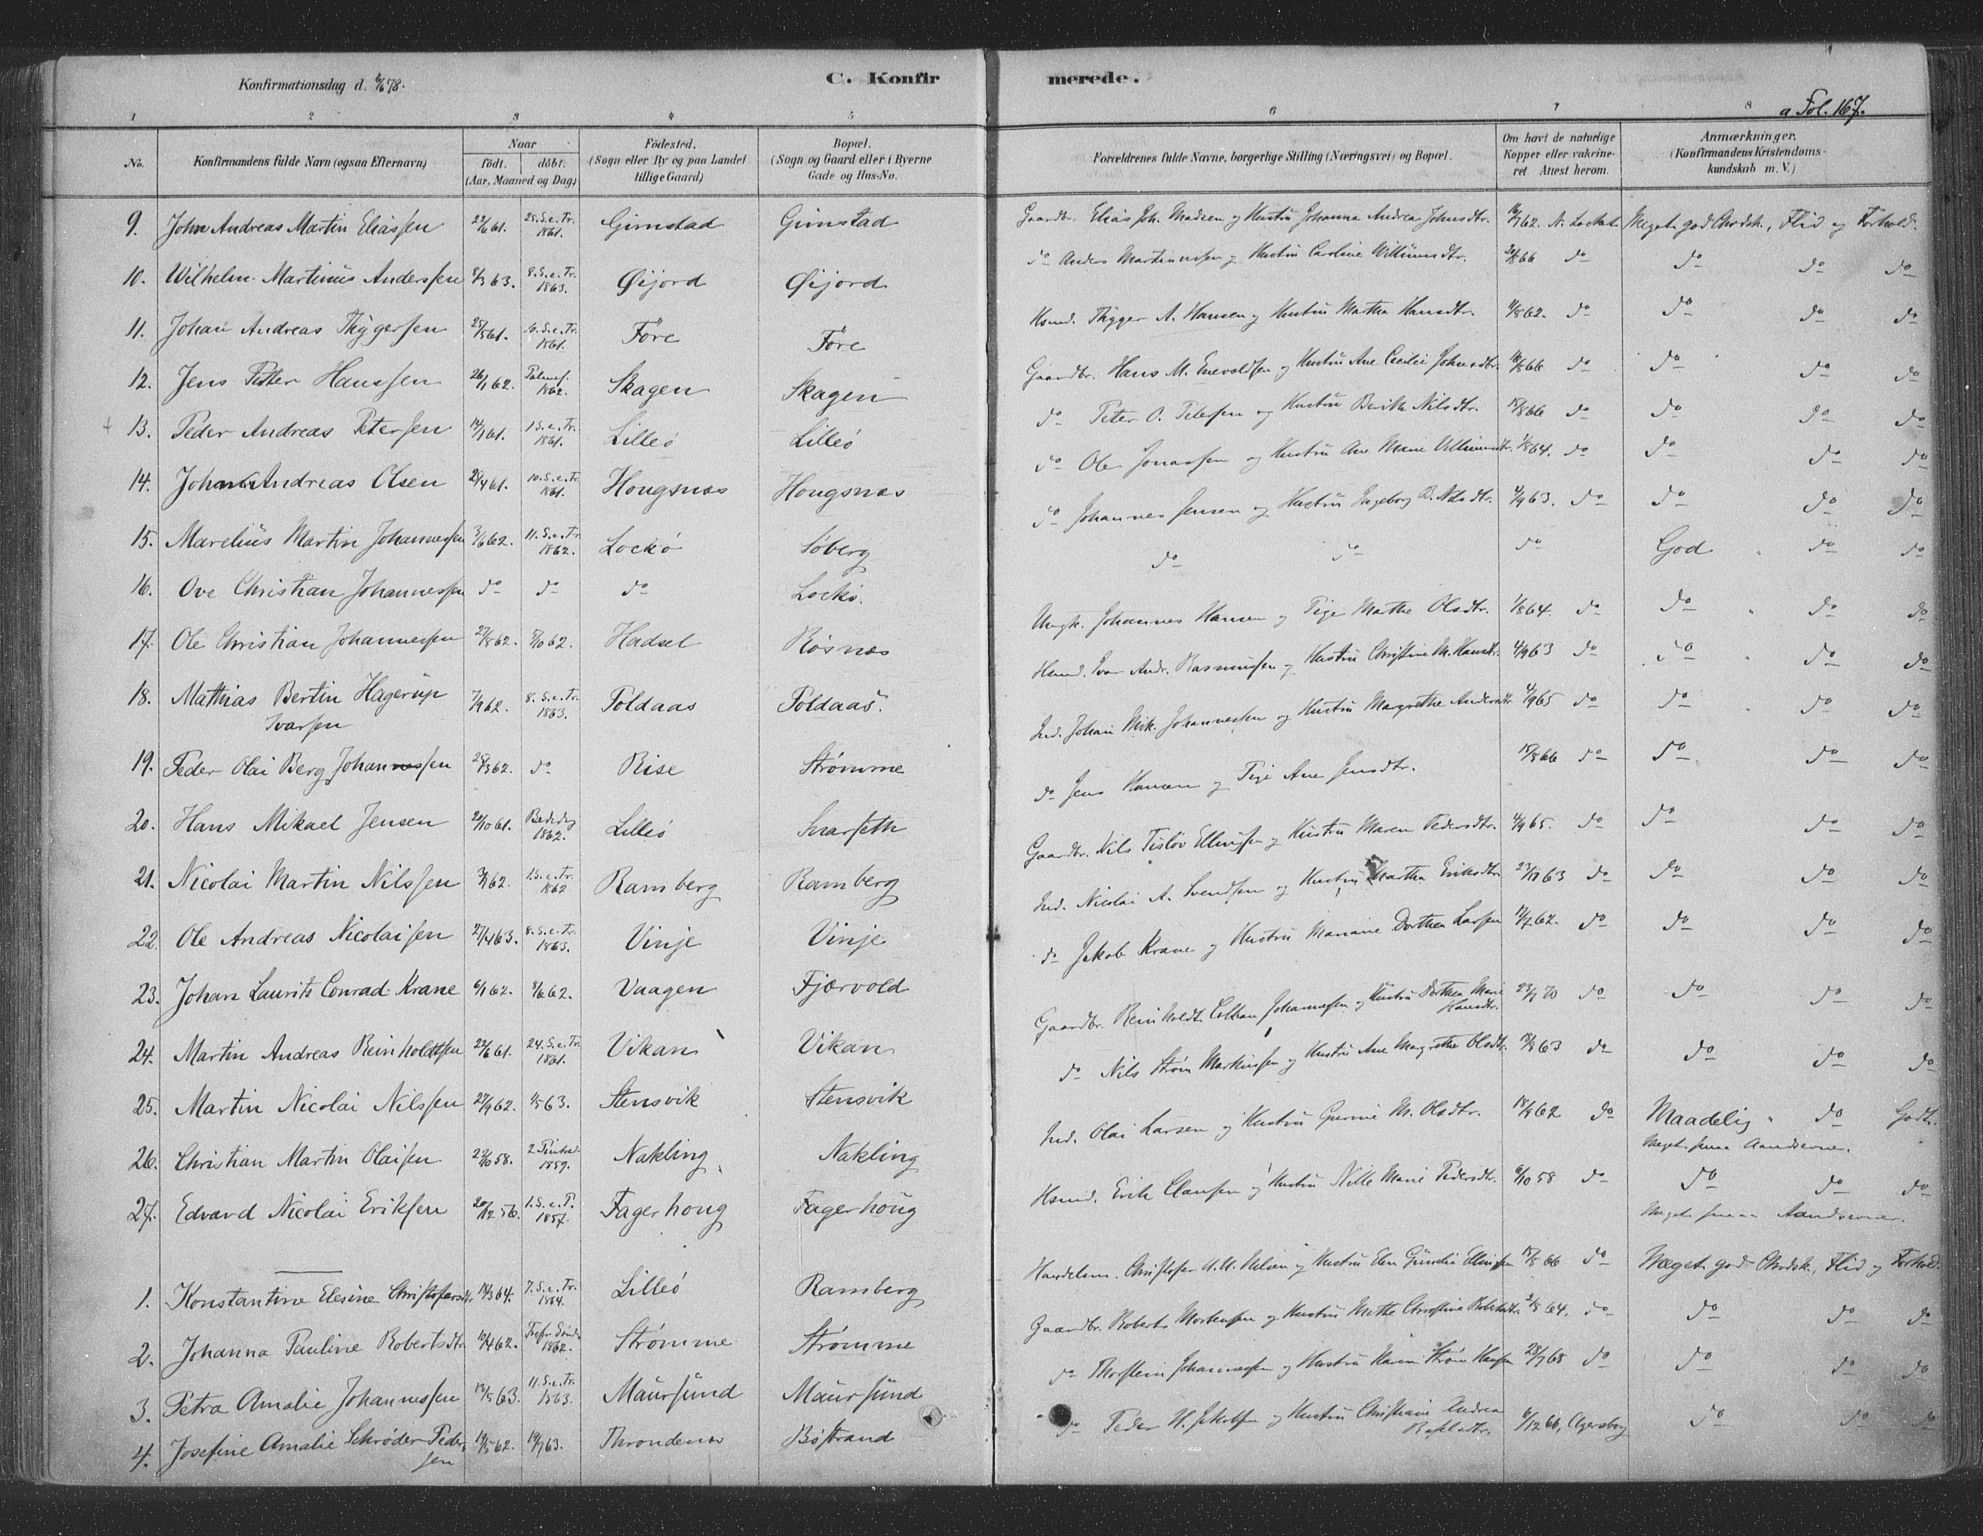 Konfirmationsdag d. 78.
C. Konfirmerede.
a Fol. 167.
1 2 3 4 5 6 7 8
No.
Konfirmandens fulde Navn (ogsaa Efternavn)
Naar
født. døbt.
(Aar, Maaned og Dag)
Fødested.
(Sogn eller By og paa Landet
tillige Gaard)
Bopæl.
(Sogn og Gaard eller i Byerne
Gade og Hus-No.
Forældrenes fulde Navne, borgerlige Stilling (Næringsvei) og Bopæl.
Om havt de naturlige
Kopper eller vakcine-
ret Attest herom.
Anmærkninger.
(Konfirmandens Kristendoms-
kundskab m. V.)
9. Johan Andreas Martin Eliassen 22/6 61. 25. S. e. Tr. 1861. Gimstad Gimstad Gaardbr. Elias Joh. Madsen og Hustru Johanna Andrea Johnsdtr. Meget god Chrdsk., Flid og Forhold.
10. Wilhelm Martinus Anderssen 8/3 63. 8. S. e. Tr. 1863. Øijord Øijord do Anders Martinussen og Hustru Caroline do do do do
11. Johan Andreas Thygersen 61. 6. S. e. Tr. 1861. Føre Føre Hsmd. Thygger A. Hansen og Hustru Martha Hansdtr. do do do do
12. Jens Petter Hanssen 26/1 62. 1862. Skagen Skagen Gaardbr. Hans M. Enevoldsen og Hustru Ane Cecilie Johnsdtr. do do do do
13. Peder Andreas Petersen 61. 1. S. e. Tr. 1861. Lilleø Lilleø do Peter O. og Hustru Berith Nilsdtr. do do do do
14. Johan Andreas Olsen 28/4 61. 10. S. e. Tr. 1861. Hougsnæs Hougsnæs do Ole Jonassen og Hustru Ane Marie do do do do
15. Marelius Martin Johannessen 3/6 62. 11. S. e. Tr. 1862. Lockø Søberg do Johannes Jensen og Hustru Ingeborg B. Nilsdtr. 4/9 63. do do do do
16. Ove Christian Johannessen do do do Lockø. do do do God do do
17. Ole Christian Johannessen 27/8 62. 5/10 62. Hadsel Røsnæs Ungk. Johannes Hansen og Pige Marthe Olsdtr. do do do do
18. Mathias Bertin Hagerup Ivarsen 7/9 62. 8. S. e. Tr. 1863. Toldaas Toldaas. Hsmd. Ivar Andr. Rasmussen og Hustru Christine M. Hansdtr. 4/9 63 do do do do
19. Peder Olai Berg Johannessen 25/3 62. do Rise Strømme Ind. Johan Mik. Johannessen og Hustru Margrethe Andersdtr. 4/9 65 do do do do
20. Hans Mikael Jensen 61. Bededag 1862. Lilleø Snarseth do Jens Hansen og Pige Ane Jensdtr. do do do do
21. Nicolai Martin Nilssen 62. 1. S. e. Tr. 1862 Ramberg Ramberg Gaardbr. Nils Tisløv Ellingsen og Hustru Maren Pedersdtr. 4/9 65. do do do do
22. Ole Andreas Nicolaisen 27/4 63. 8. S. e. Tr. 1863. Vinje Vinje Ind. Nicolai A. Svendsen og Hustru Martha Eriksdtr. 63 do do do do
23. Johan Laurits Conrad Krane 6/1 62. 8/6 62. Vaagen Fjærvold do Jakob Krane og Hustru Mariane Dorthea Larsen 62. do do do do
24. Martin Andreas Reinholdtsen 22/6 61. 24. S. e. Tr. 1861. Vikan Vikan Gaardbr. Reinholdt Johannessen og Hustru Dorthea Marie Hansdtr. 70 do do do do
25. Martin Nicolai Nilssen 27/9 62. 63. Stensvik Stensvik do Nils Strøm Markussen og Hustru Ane Margrethe Olsdtr. 63 do do do do
26. Christian Martin Olaisen 58. 1859. Nakling Nakling Ind. Olai Larsen og Hustru M. Olsdtr. 62 do Maadelig do Godt.
Meget smaa Aandsevner.
27. Edvard Nicolai Eriksen 20/12 56. 1. S. e. P. 1857. Fagerhoug Fagerhoug Hsmd. Erik Clausen og Hustru Nille Marie Pedersdtr. 6/10 58 do do do do
Meget smaa Aandsevner.
1. Konstantine Elesine Christofersdtr 64. 7. S. e. Tr. 1864. Lilleø Ramberg Handelsm. Christofer og Hustru Elen Ellingsen 66 do Meget god Chrdsk., Flid og Forhold.
2. Johanna Pauline Robertsdtr 62. 1862. Strømme Strømme Gaardbr. Robert Mortensen og Hustru Mette Christine 64. do do do do
3. Petra Amalie Johannessen 63. 11. S. e. Tr. 1863. Maursund Maursund do Johannessen og Hustru Strøm Hansen 68 do do do do
4. Josefine Amalie Schrøder Pedersen 62. 63. Throndenæs Bøstrand do Peder H. Jakobsen og Hustru Christiane Andrea 6/12 66, do do do